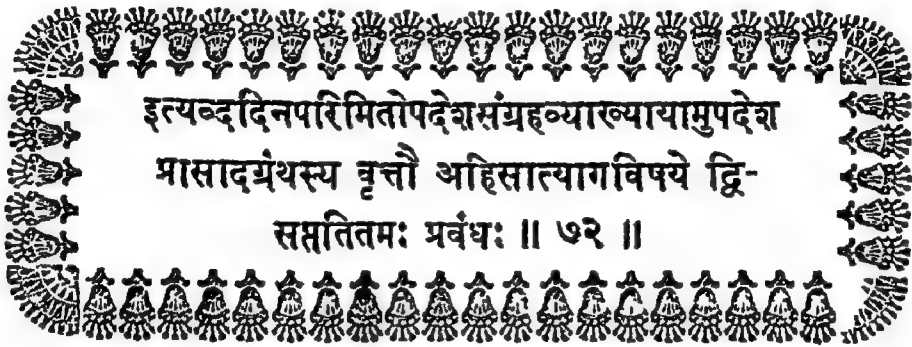 इत्यव्ददिनपरिमितोपदेशसंग्रहव्याख्यायामुपदेश
प्रासादग्रंथस्य वृत्तौ अहिसात्यागविषये द्वि-
सप्ततितमः प्रवंधः ॥ ७२ ॥